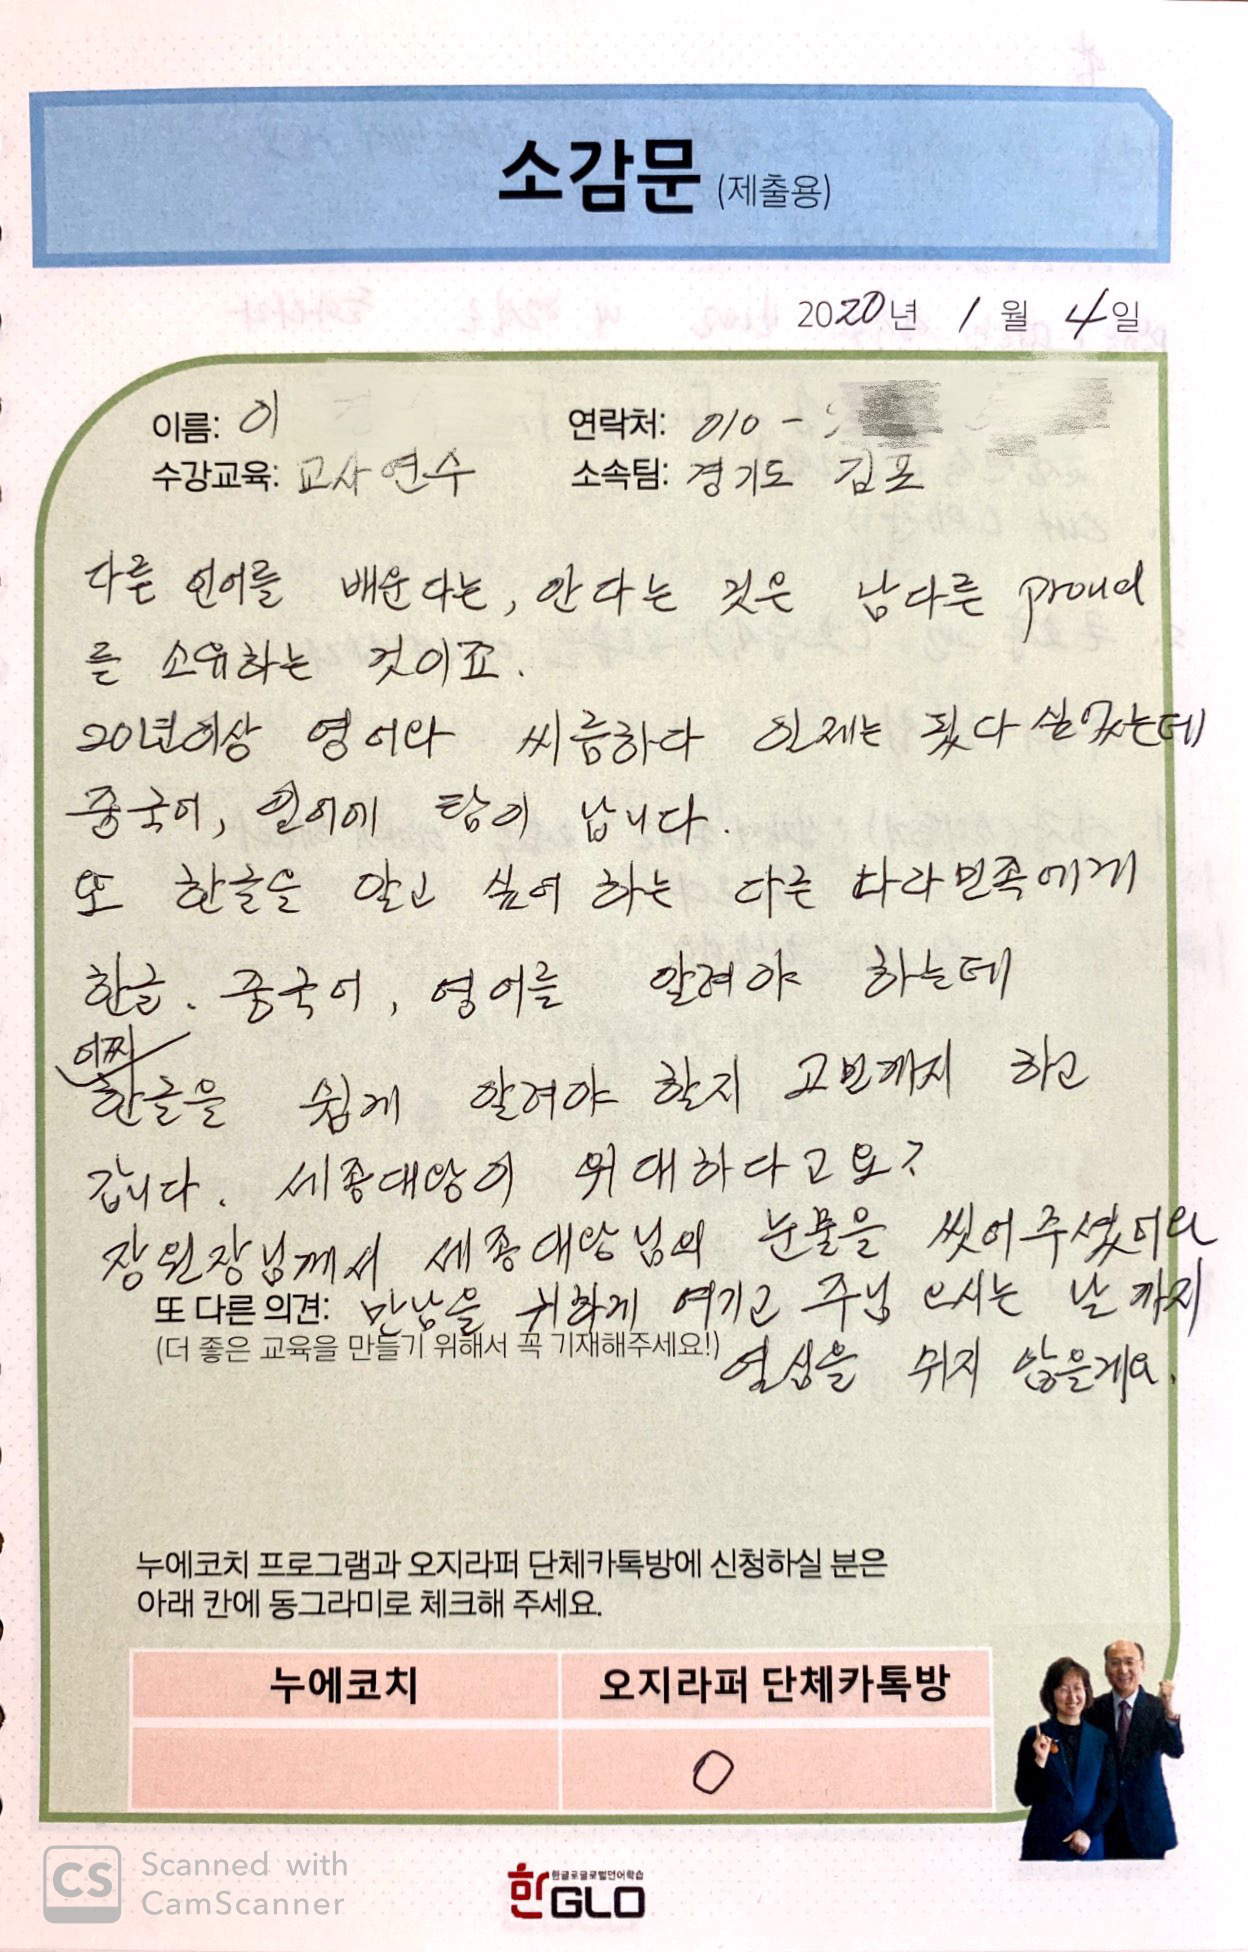 소감문 (제출용)
2020년 1월 4일
이름: 이
연락처: 010 -
수강교육: 교사연수
소속팀: 경기도 김포
다른 언어를 배운다는, 안다는 것은 남다른 proud
를 소유하는 것이죠.
20년이상 영어와 씨름하다 인제는 됐다 싶었는데
중국어, 일어에 탐이 납니다.
또 한글을 알고 싶어 하는 다른 나라민족에게
한글. 중국어, 영어를 알려야 하는데
어찌
한글을 쉽게 알려야 할지 고민까지 하고
갑니다. 세종대왕이 위대하다고요?
장원장님께서 세종대왕님의 눈물을 씻어주셨어요
또 다른 의견: 만남을 귀하게 여기고 주님 오시는 날까지
(더 좋은 교육을 만들기 위해서 꼭 기재해주세요!)
열심을 뉘지 않을게요.
누에코치 프로그램과 오지라퍼 단체카톡방에 신청하실 분은
아래 칸에 동그라미로 체크해 주세요.
누에코치
오지라퍼 단체카톡방
O
CS Scanned with
CamScanner
한글로글로벌언어학습
한GLO